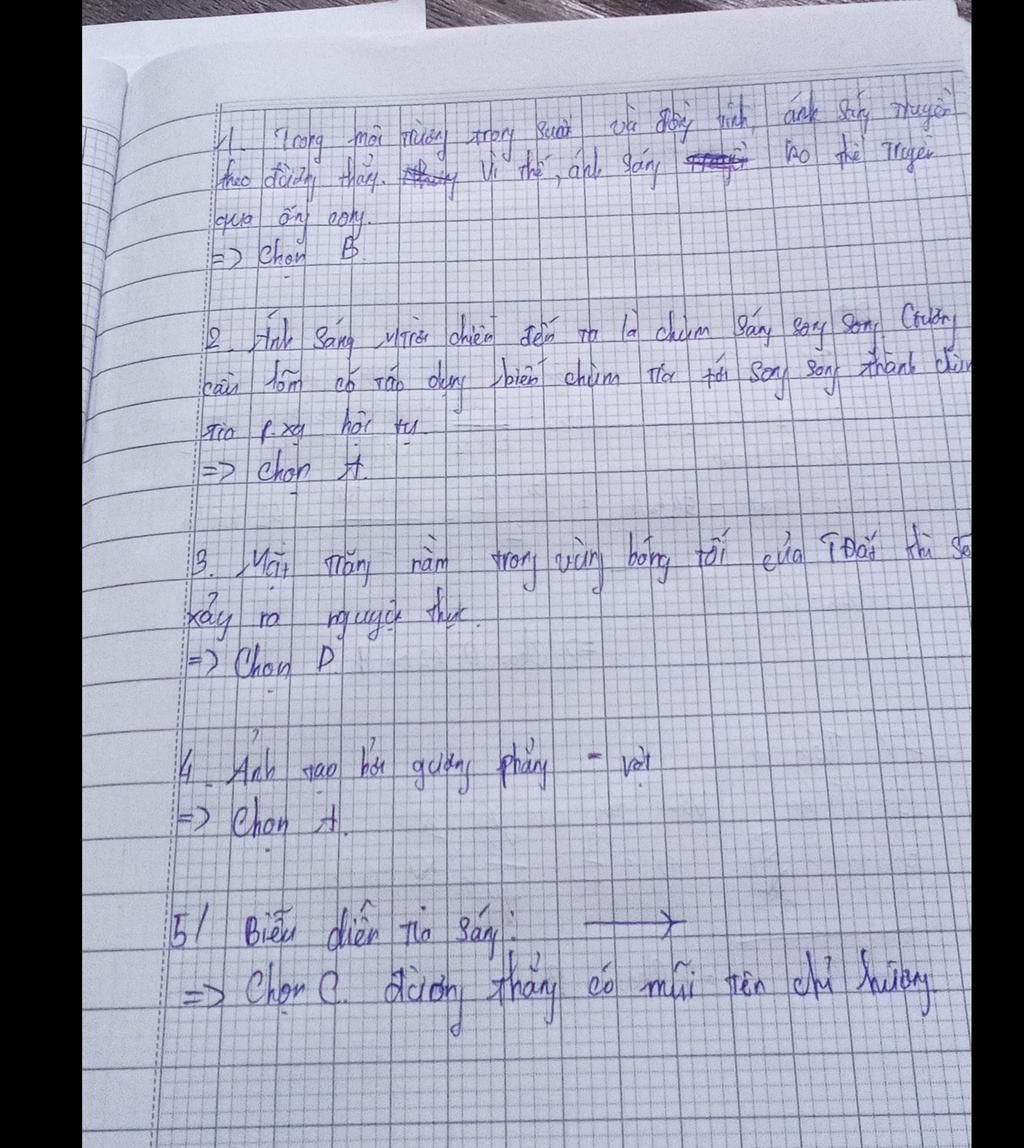 1. Trong môi trường trong suốt và đồng tính, ánh sáng truyền
theo đường thẳng. Vì thế, ánh sáng ko thể truyền
qua ống cong.
=> Chọn B.
2. Ánh sáng MTrời chiếu đến ta là chùm sáng song song. Gương
cầu lõm có tác dụng biến chùm tia tới song song thành chùm
tia p.xạ hội tụ
=> Chọn A.
3. Mặt Trăng nằm trong vùng bóng tối của TĐất thì sẽ
xảy ra nguyệt thực.
=> Chọn D.
4. Ảnh tạo bởi gương phẳng = vật
=> Chọn A.
5/ Biểu diễn tia sáng:
=> Chọn C. đường thẳng có mũi tên chỉ hướng.